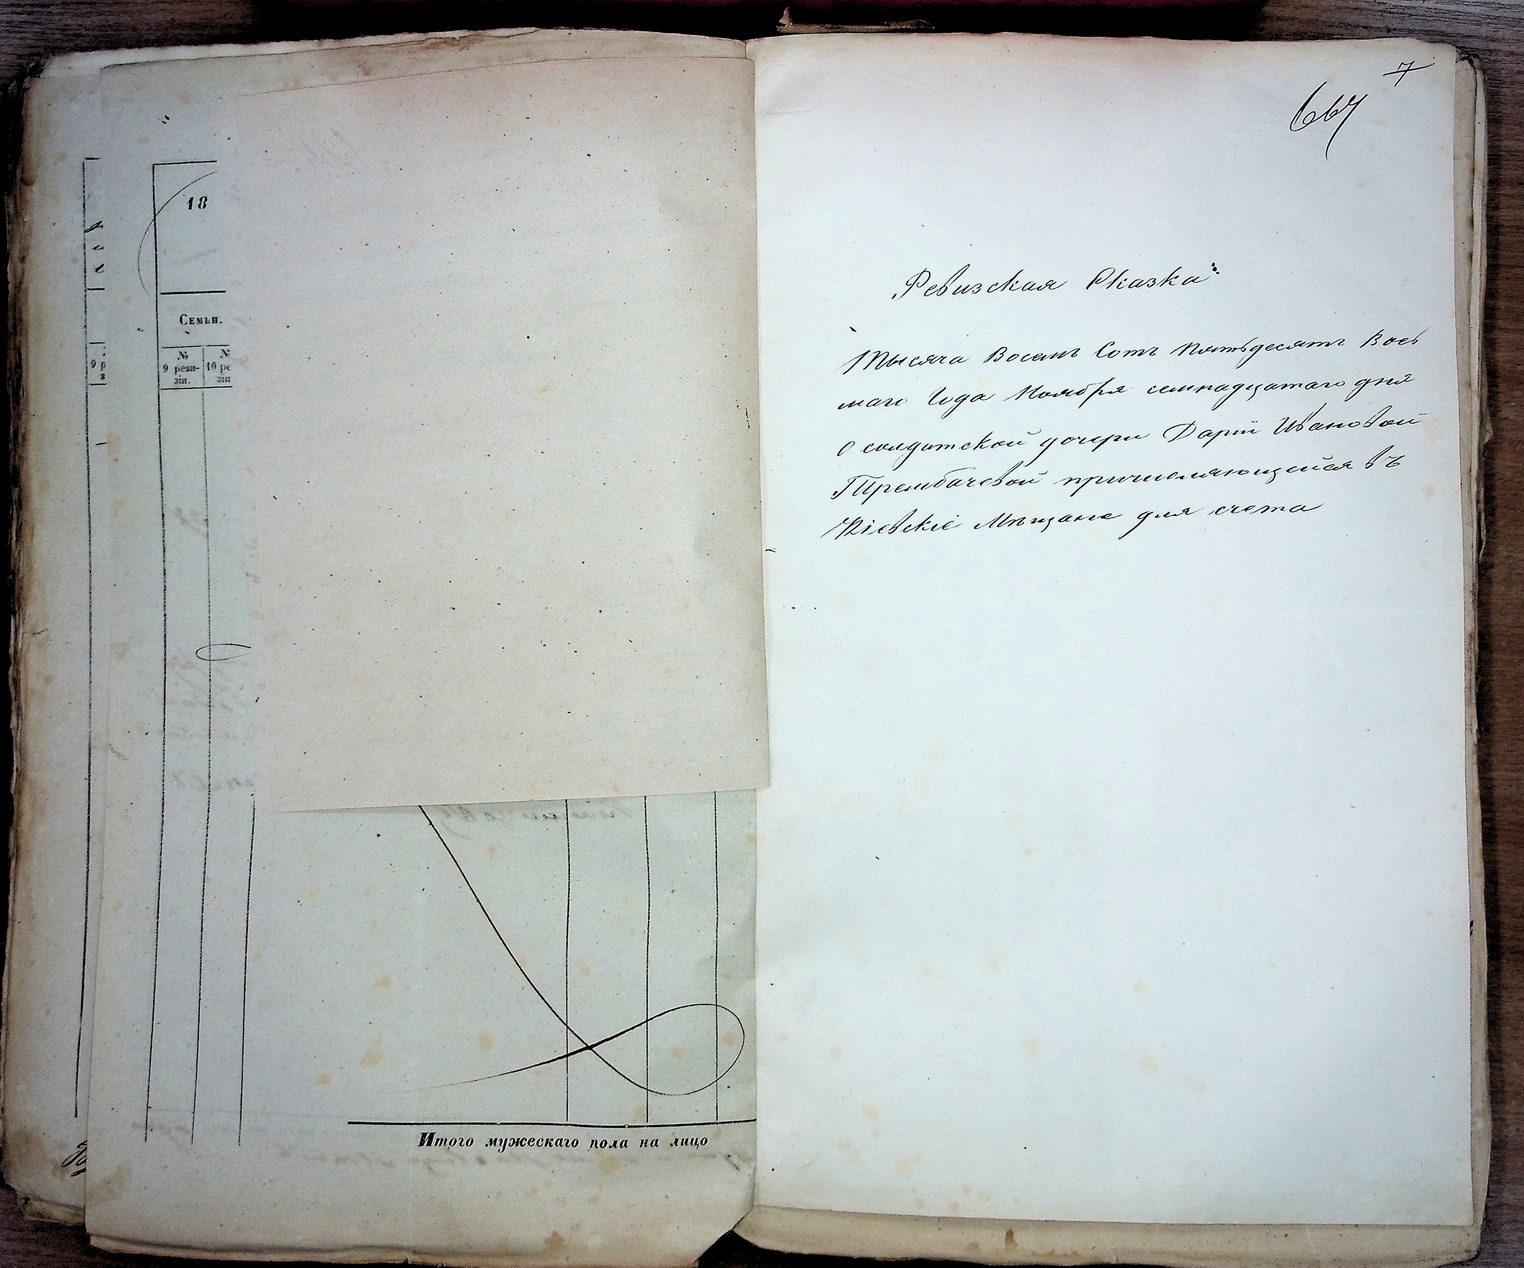 18
Семьи.
№
9 реви-
зіи.
№
10 ре
зіи
Итого мужескаго пола на лицо
7
667
Ревизская Сказка
Тысяча Восемь Сотъ Пятьдесятъ Вось
маго Года Ноября семнадцатаго дня
о солдатской дочери Дарiи Ивановой
Трембачевой причисляющейся въ
Кіевскіе Мѣщане для счета